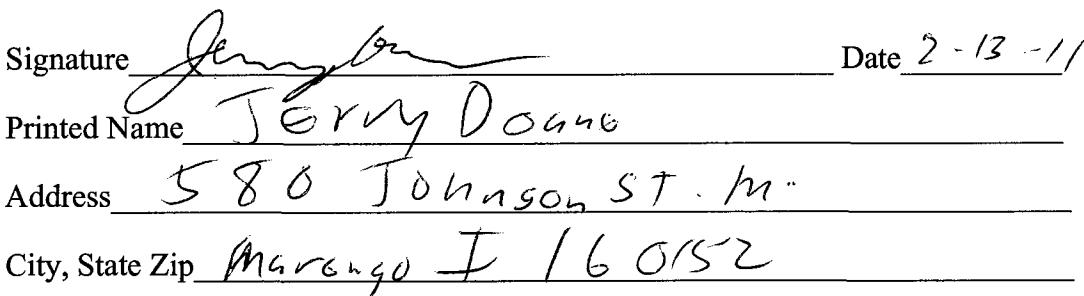 Signature Date 2-13-11
Printed Name Jerry Doane
Address 580 Johnson ST. M.
City, State Zip Marengo Il 60152